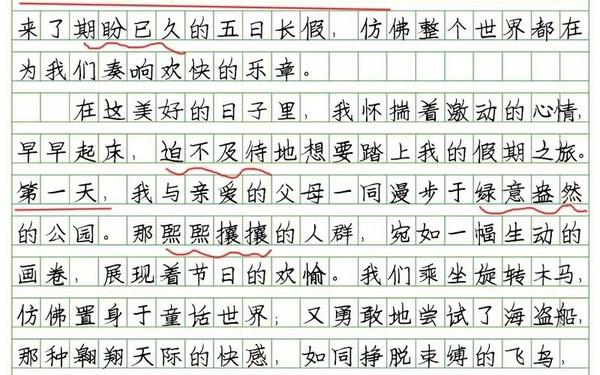 来了期盼已久的五日长假，仿佛整个世界都在
为我们奏响欢快的乐章。
在这美好的日子里，我怀揣着激动的心情，
早早起床，迫不及待地想要踏上我的假期之旅。
第一天，我与亲爱的父母一同漫步于绿意盎然
的公园。那熙熙攘攘的人群，宛如一幅生动的
画卷，展现着节日的欢愉。我们乘坐旋转木马，
仿佛置身于童话世界；又勇敢地尝试了海盗船，
那种翱翔天际的快感，如同挣脱束缚的飞鸟，